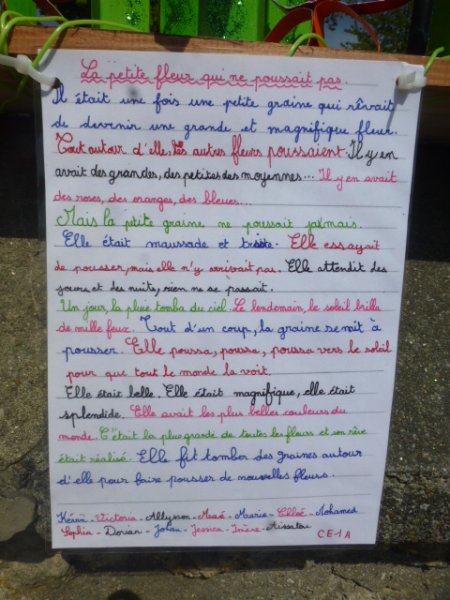 La petite fleur qui ne poussait pas.
Il était une fois une petite graine qui rêvait
de devenir une grande et magnifique fleur.
Tout autour d'elle, les autres fleurs poussaient. Il y en
avait des grandes, des petites des moyennes... Il y en avait
des roses, des oranges, des bleues...
Mais la petite graine ne poussait jamais.
Elle était maussade et triste. Elle essayait
de pousser, mais elle n'y arrivait pas. Elle attendit des
jours et des nuits, rien ne se passait.
Un jour, la pluie tomba du ciel. Le lendemain, le soleil brilla
de mille feux. Tout d'un coup, la graine se mit à
pousser. Elle poussa, poussa, poussa vers le soleil
pour que tout le monde la voit.
Elle était belle. Elle était magnifique, elle était
splendide. Elle avait les plus belles couleurs du
monde. C'était la plus grande de toutes les fleurs et son rêve
était réalisé. Elle fit tomber des graines autour
d'elle pour faire pousser de nouvelles fleurs.
Victoria - Allyson - Maé - Marie - Chloé - Mohamed
Sophia - Dorian - Johan - Jessica - Inère - Aissatou
CE1A